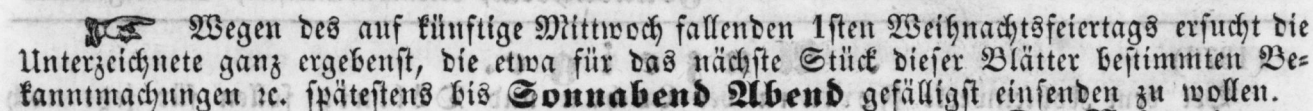 ☞ Wegen des auf künftige Mittwoch fallenden 1sten Weihnachtsfeiertags ersucht die
Unterzeichnete ganz ergebenst, die etwa für das nächste Stück dieser Blätter bestimmten Be-
kanntmachungen ꝛc. spätestens bis Sonnabend Abend gefälligst einsenden zu wollen.